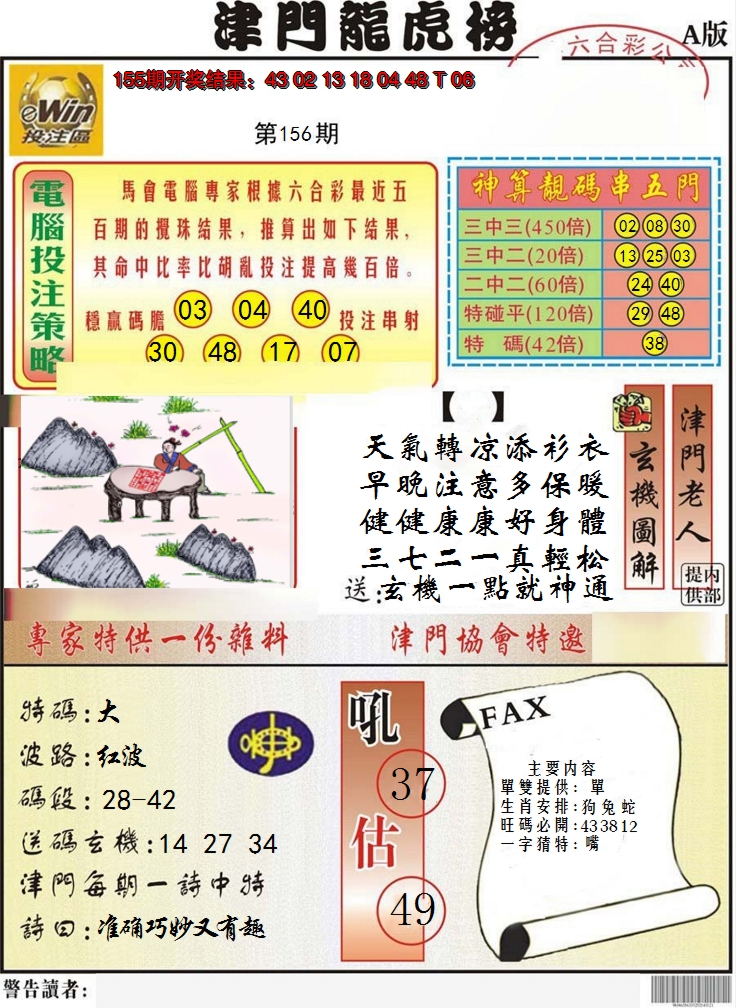 津門龍虎榜
A版
六合彩公
eWin
投注區
155期开奖结果：43 02 13 18 04 48 T 06
第156期
電腦投注策略
馬會電腦專家根據六合彩最近五
百期的攪珠结果，推算出如下结果，
其命中比率比胡亂投注提高幾百倍。
穩贏碼膽 03 04 40 投注串射
30 48 17 07
神算靚碼串五門
三中三(450倍) 02 08 30
三中二(20倍) 13 25 03
二中二(60倍) 24 40
特碰平(120倍) 29 48
特 碼(42倍) 38
【 】
天氣轉凉添衫衣
早晚注意多保暖
健健康康好身體
三七二一真輕松
送:玄機一點就神通
玄機圖解
津門老人
内部提供
專家特供一份雜料
津門協會特邀
特碼:大
波路:红波
碼段:28-42
送碼玄機:14 27 34
津門每期一詩中特
詩曰:准确巧妙又有趣
吼
37
估
49
FAX
主要内容
單雙提供: 單
生肖安排:狗兔蛇
旺碼必開:433812
一字猜特: 嘴
警告讀者: